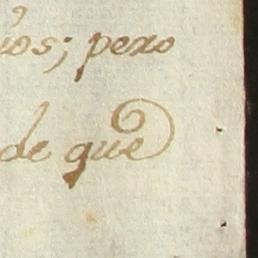 ios; pero
de que